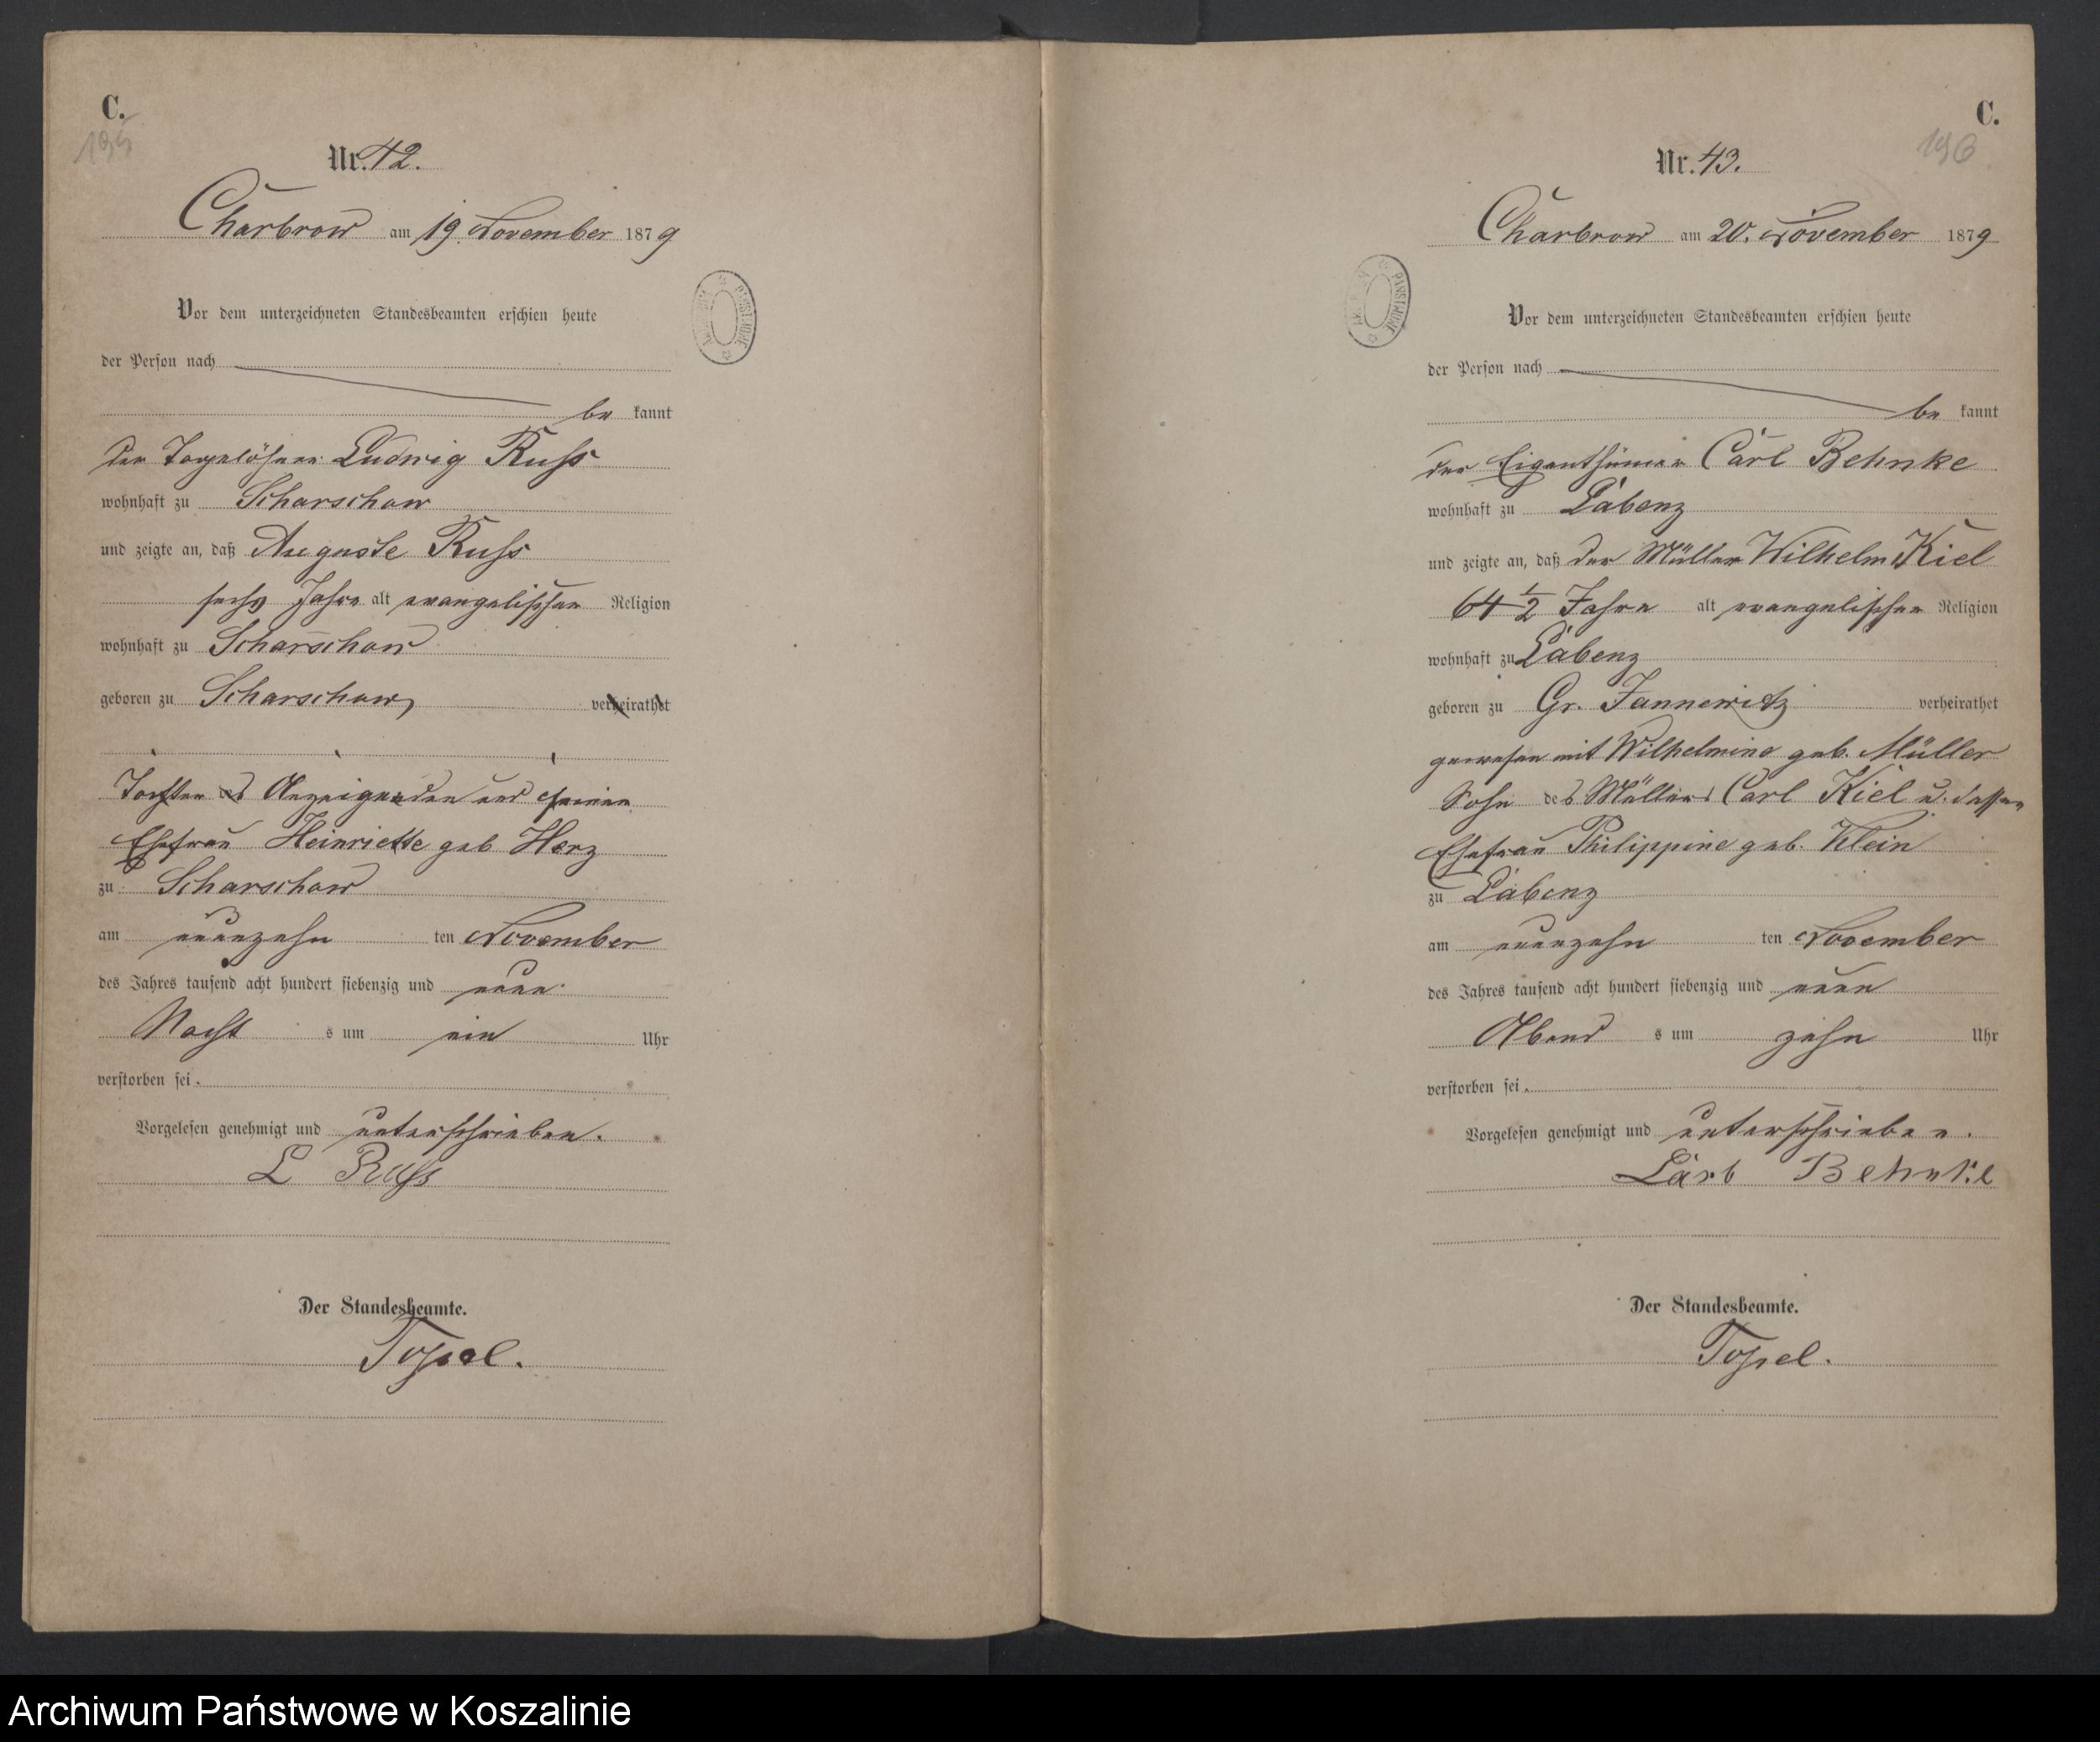 C.
195
Nr. 42.
Charbrow am 19. November 1879
Vor dem unterzeichneten Standesbeamten erschien heute
der Person nach
be kannt
der Tagelöhner Ludwig Russ
wohnhaft zu Scharschow
und zeigte an, daß Auguste Russ
sechs Jahre alt evangelischer Religion
wohnhaft zu Scharschow
geboren zu Scharschow, verheirathet
Tochter des Anzeigenden und seiner
Ehefrau Heinriette geb Herz
zu Scharschow
am neunzehn ten November
des Jahres tausend acht hundert siebenzig und neun
Nacht s um ein Uhr
verstorben sei.
Vorgelesen genehmigt und unterschrieben.
L Russ
Der Standesbeamte.
Topel.
C.
196
Nr. 43.
Charbrow am 20. November 1879
Vor dem unterzeichneten Standesbeamten erschien heute
der Person nach
be kannt
der Eigenthümer Carl Behnke
wohnhaft zu Labenz
und zeigte an, daß der Müller Wilhelm Kiel
64 1/2 Jahre alt evangelischer Religion
wohnhaft zu Labenz
geboren zu Gr. Jannewitz verheirathet
gewesen mit Wilhelmine geb. Müller
Sohn des Müllers Carl Kiel u. dessen
Ehefrau Philippine geb. Klein
zu Labenz
am neunzehn ten November
des Jahres tausend acht hundert siebenzig und neun
Abend s um zehn Uhr
verstorben sei.
Vorgelesen genehmigt und unterschrieben.
Carl Behnke
Der Standesbeamte.
Topel.
Archiwum Państwowe w Koszalinie